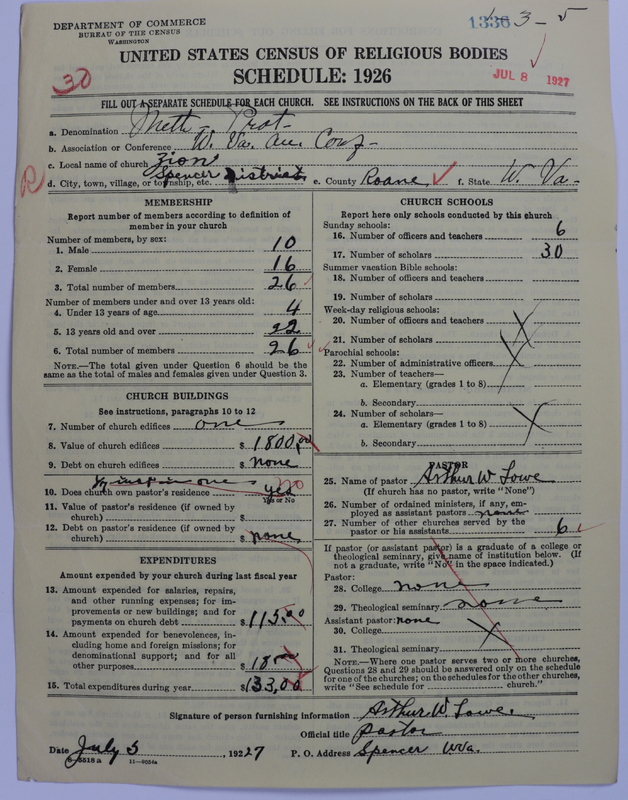 DEPARTMENT OF COMMERCE
BUREAU OF THE CENSUS
WASHINGTON
1336 3-5
UNITED STATES CENSUS OF RELIGIOUS BODIES
SCHEDULE: 1926
JUL 8 1927
30
FILL OUT A SEPARATE SCHEDULE FOR EACH CHURCH. SEE INSTRUCTIONS ON THE BACK OF THIS SHEET
a. Denomination Meth - Prot -
b. Association or Conference W. Va. An. Conf -
c. Local name of church Zion
d. City, town, village, or township, etc. Spencer District e. County Roane f. State W. Va -
R
MEMBERSHIP
Report number of members according to definition of member in your church
Number of members, by sex:
1. Male 10
2. Female 16
3. Total number of members 26
Number of members under and over 13 years old:
4. Under 13 years of age 4
5. 13 years old and over 22
6. Total number of members 26
NOTE.—The total given under Question 6 should be
same as the total of males and females given under Question 3.
CHURCH BUILDINGS
See instructions, paragraphs 10 to 12
7. Number of church edifices one
8. Value of church edifices $ 1800.00
9. Debt on church edifices $ none
10. Does church own pastor's residence yes no
Yes or No
11. Value of pastor's residence (if owned by
church) $
12. Debt on pastor's residence (if owned by
church) $ none
EXPENDITURES
Amount expended by your church during last fiscal year
13. Amount expended for salaries, repairs,
and other running expenses; for im-
provements or new buildings; and for
payments on church debt $ 115.00
14. Amount expended for benevolences, in-
cluding home and foreign missions; for
denominational support; and for all
other purposes $ 18
15. Total expenditures during year $ 133.00
CHURCH SCHOOLS
Report here only schools conducted by this church
Sunday schools:
16. Number of officers and teachers 6
17. Number of scholars 30
Summer vacation Bible schools:
18. Number of officers and teachers
19. Number of scholars
Week-day religious schools:
20. Number of officers and teachers
21. Number of scholars
Parochial schools:
22. Number of administrative officers
23. Number of teachers—
a. Elementary (grades 1 to 8)
b. Secondary
24. Number of scholars—
a. Elementary (grades 1 to 8)
b. Secondary
PASTOR
25. Name of pastor Arthur W. Lowe
(If church has no pastor, write "None")
26. Number of ordained ministers, if any, em-
ployed as assistant pastors none
27. Number of other churches served by the
pastor or his assistants 6
If pastor (or assistant pastor) is a graduate of a college or
theological seminary, give name of institution below. (If
not a graduate, write "No" in the space indicated.)
Pastor:
28. College none
29. Theological seminary none
Assistant pastor: none
30. College
31. Theological seminary
NOTE.—Where one pastor serves two or more churches,
Questions 28 and 29 should be answered only on the schedule
for one of the churches; on the schedules for the other churches,
write "See schedule for church."
Signature of person furnishing information Arthur W. Lowe
Official title Pastor
Date July 5, 192 27 P. O. Address Spencer W Va.
6-5518a 11-9054a